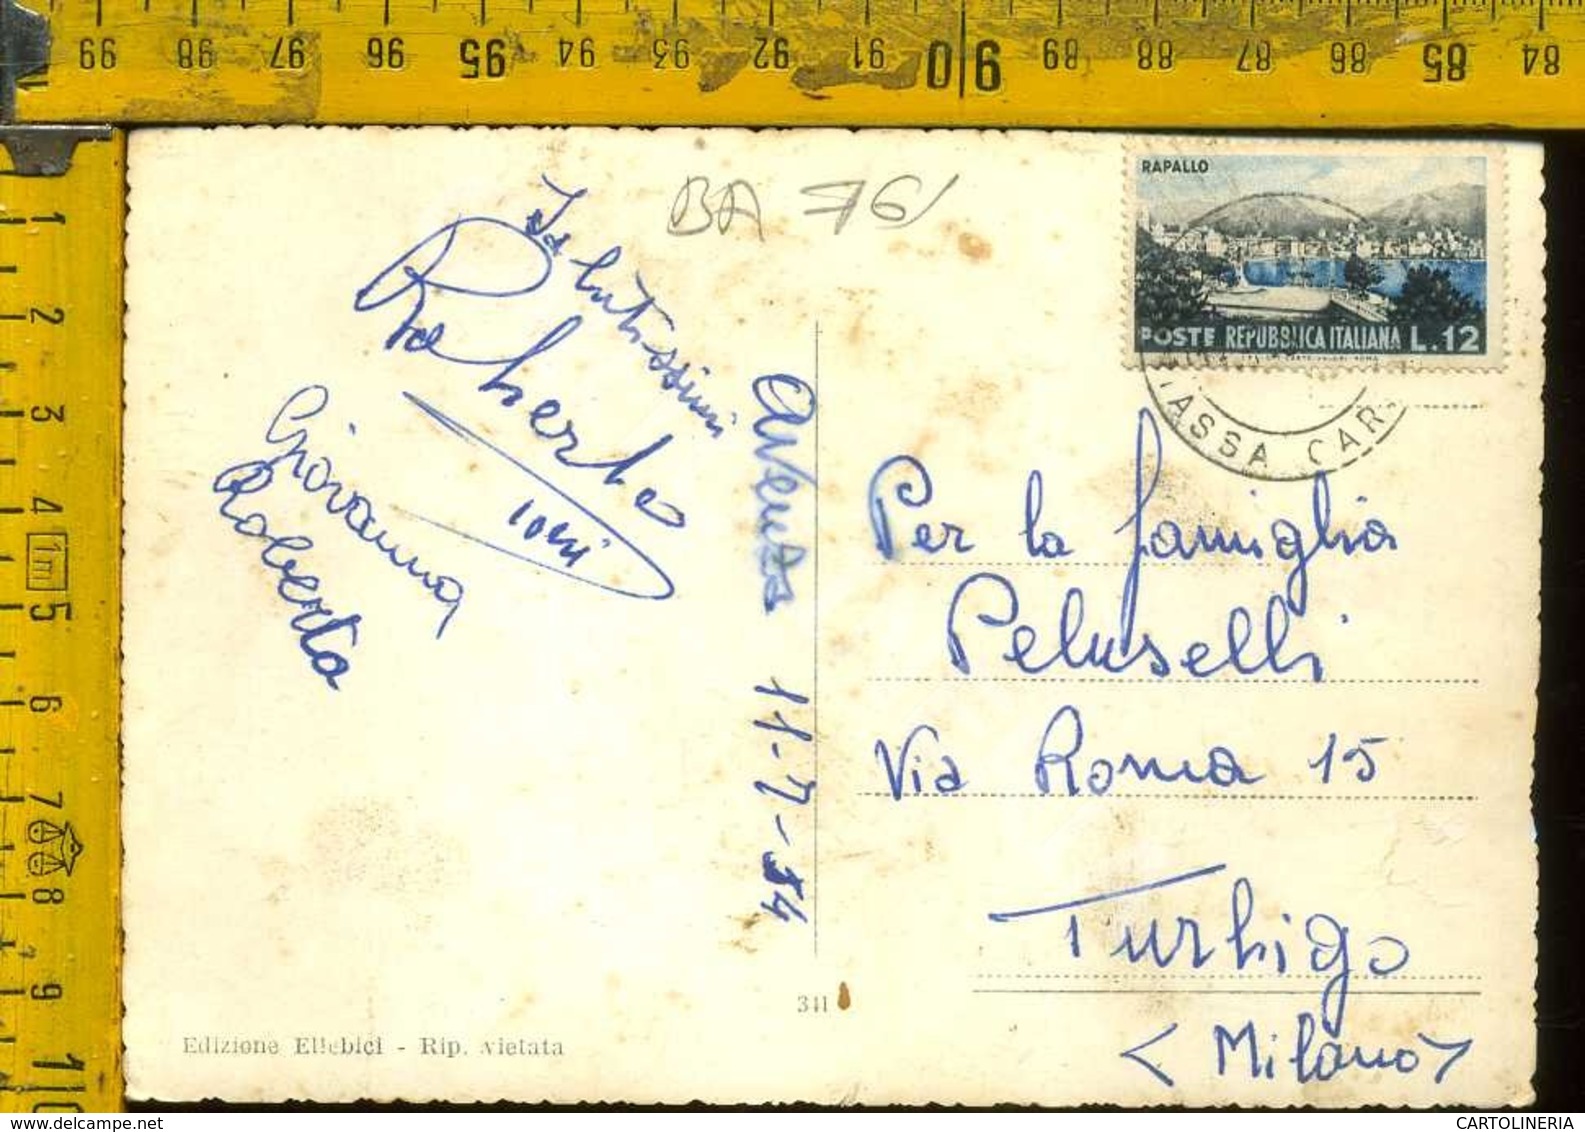 99 98 97 96 95 94 93 92 91 90 89 88 87 86 85 84
1
2
3
4
1m
5
6
7
8
9
10
BA 76
RAPALLO
POSTE REPUBBLICA ITALIANA L.12
MASSA CAR
Salutissimi
Roberto
Giovanna
Roberta
Avenza 11-7-54
Per la famiglia
Peluselli
Via Roma 15
Turbigo
(Milano)
341
Edizione Ellebici - Rip. vietata
CARTOLINERIA